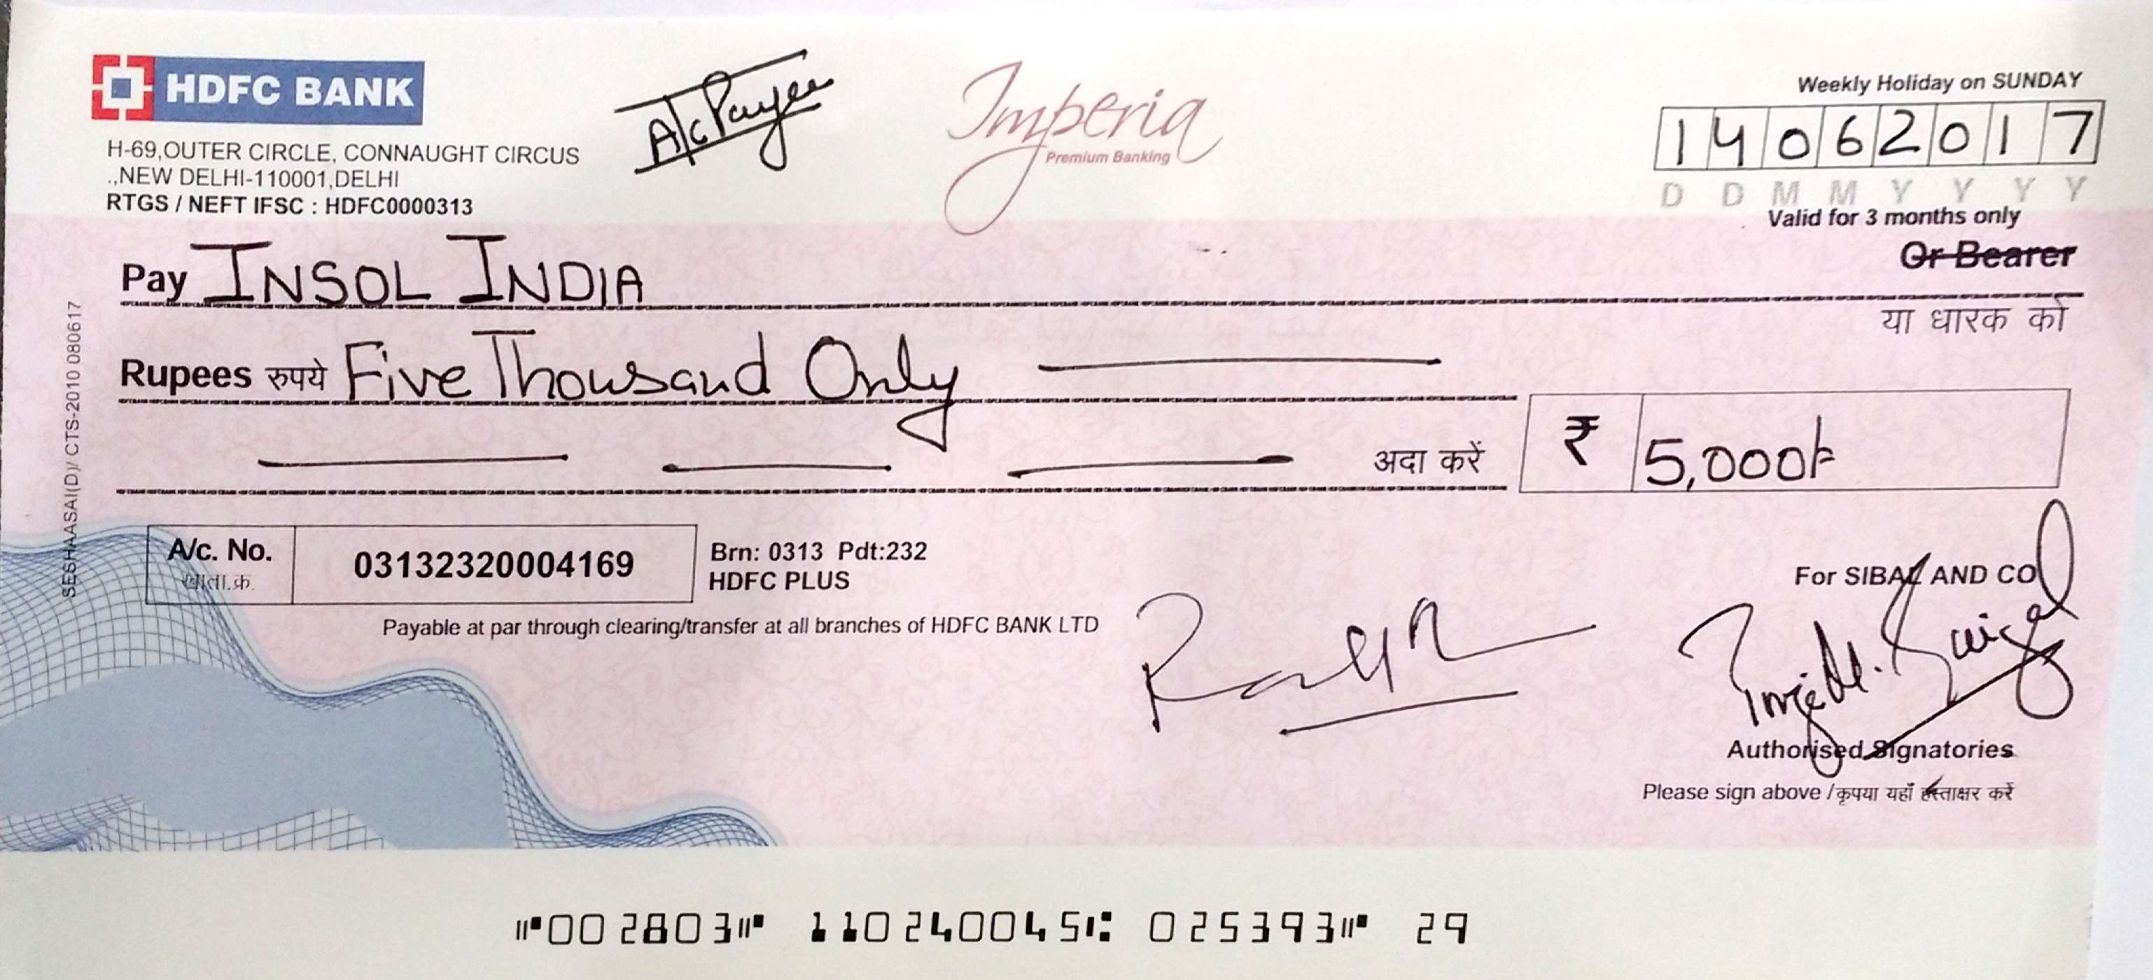 HDFC BANK
H-69,OUTER CIRCLE, CONNAUGHT CIRCUS
.,NEW DELHI-110001,DELHI
RTGS / NEFT IFSC : HDFC0000313
A/c Payee
Imperia
Premium Banking
Weekly Holiday on SUNDAY
14062017
D D M M Y Y Y Y
Valid for 3 months only
Pay INSOL INDIA
Or Bearer
या धारक को
Rupees रुपये Five Thousand Only
अदा करें ₹ 5,000/-
SESHAASAI(D)/ CTS-2010 080617
A/c. No. 03132320004169
खाता.क्र.
Brn: 0313 Pdt:232
HDFC PLUS
Payable at par through clearing/transfer at all branches of HDFC BANK LTD
For SIBAL AND CO
Authorised Signatories
Please sign above /कृपया यहाँ हस्ताक्षर करें
⑈002803⑈ 110240045⑆ 025393⑈ 29